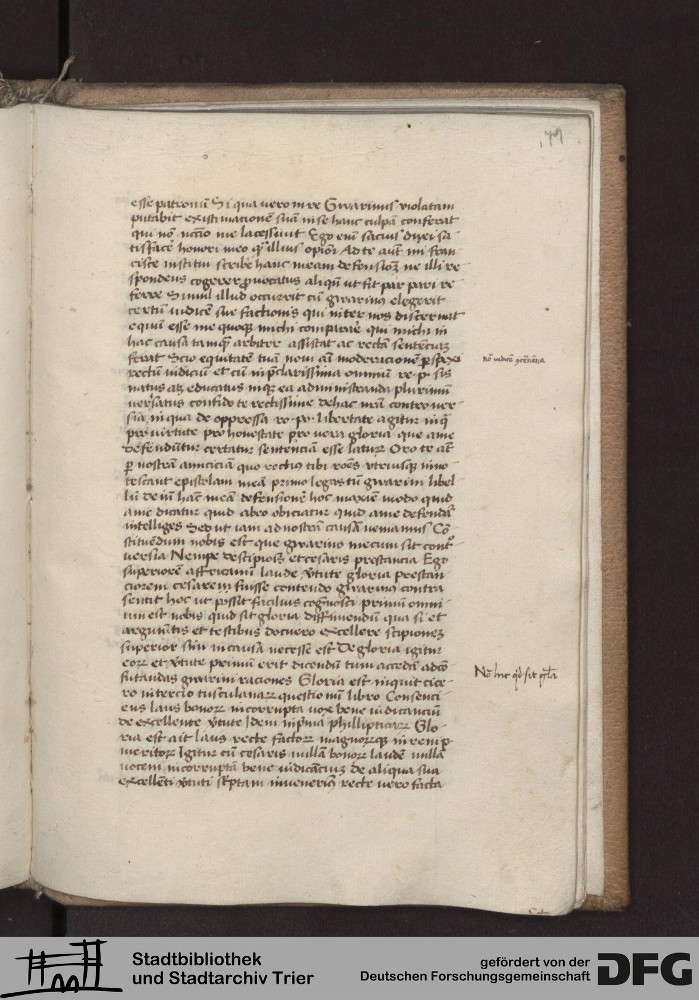 179
esse patronū Si qua vero in re Gwarinus violatam
putabit existimacionē suā in se hanc culpā conferat
qui nō uerbo me lacessiuit Ego enī sacius duxi sa-
tisfacere honori meo q̄ illius opiōi Ad te aūt mi fran-
cisce institui scribere hanc meam defensionē ne illi re-
spondens cogerer ꝓuocatus aliqn̄ ut fit par pari re-
ferre Simul illud occurrit cū gwarinus elegerit
certū iudicē sue factionis qui inter nos discernat
equū esse me quoqꝫ michi comparare qui michi in
hac causa tamq̄ arbiter assistat ac rectā sentenciā
ferat Scio equitatē tuā noui aī moderacionē perspexi
rectū iudiciū et cū in p̄clarissima omniū re p. sis
natus atqꝫ educatus inqꝫ ea administranda plurimū
uersatus confido te rectissime de hac nrā controuer-
sia in qua de oppressa ro. po. libertate agitur inqꝫ
pro virtute pro honestate pro vera gloria que a me
defenduntur certatur sentenciā esse laturū Oro te aūt
ꝑ nostrā amiciciā
testant epistolam meā primo legas tū gwarini libel-
lū deīn hāc meā defensionē hoc maxīe modo quid
a me dicatur quid ab eo obiciatur quid a me defendat̄
intelliges Sed ut iam ad nostrā causā veniamus Cō-
stituēdum nobis est que gwarino mecum sit contro-
versia Nempe de scipiōis et cesaris prestancia Ego
superiorē affricanū laude v̄tute gloria prestan-
ciorem cesarem fuisse contendo gwarinus contra
sentit hoc ut possit facilius cognosci primū omni-
um est nobis quid sit gloria diffiniendū qua si et
argumētis et testibus docuero excellere scipionē
superior sim in causa necesse est De gloria igitur
eorꝝ et v̄tute primū erit dicendū tum accedā ad cō-
futandas gwarini raciones Gloria est inquit cice-
ro in tercio tusculanarꝝ questionū libro Consenci-
ens laus bonorꝝ incorrupta vox bene iudicanciū
de excellente v̄tute Idem in pīma phillippicarꝝ Glo-
ria est ait laus recte factorꝝ magnorūqꝫ in remp.
meritorꝝ Igitur cū cesaris nullā bonorꝝ laudē nullā
vocem incorruptā bene iudicanciū de aliqua sua
excellēti v̄tuti sc̄ptam inuenerim recte vero facta
Nō hic qͥd sit gl̄a
Stadtbibliothek
und Stadtarchiv Trier
gefördert von der
Deutschen Forschungsgemeinschaft
DFG